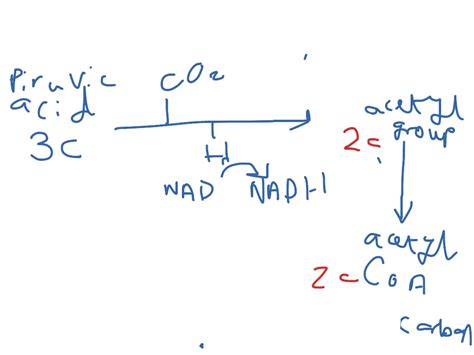 Piruvic
acid
3C
CO2
H
NAD NADH
acetyl
group
2c
acetyl
2c CoA
carbon